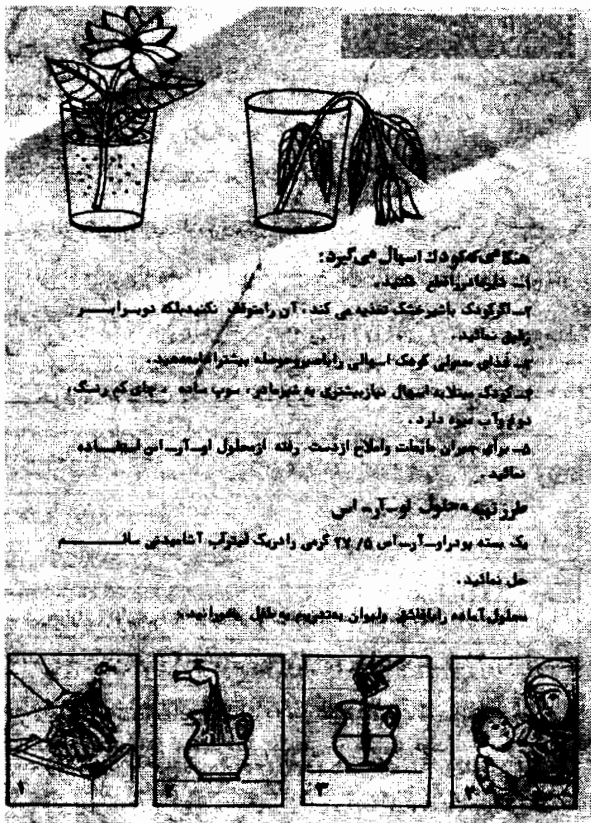 هنگامی که کودك اسهال می‌گیرد:
۱ـ شیرمادر را قطع نکنید.
۲ـ اگرکودک باشیرخشک تغذیه می کند، آن رامتوقف نکنیدبلکه دوبرابر
رقیق نمائید.
۳ـ غذای معمولی کودک اسهالی را باصبروحوصله بیشتر ادامه‌دهید.
۴ـ کودک مبتلابه اسهال نیازبیشتری به شیرمادر، سوپ ساده، چای کم رنگ،
دوغ وآب میوه دارد.
۵ـ برای جبران مایعات واملاح ازدست رفته ازمحلول او‌ـ‌آر‌ـ‌اس استفاده
نمائید.
طرز تهیه محلول او‌ـ‌آر‌ـ اس
یک بسته پودراو‌ـ‌آر‌ـ‌اس ۲۷/۵ گرمی رادریک لیترآب آشامیدنی سالم
حل نمائید.
محلول آماده راباقاشق ولیوان به‌تدریج به طفل بخورانید.
۱
۲
۳
۴